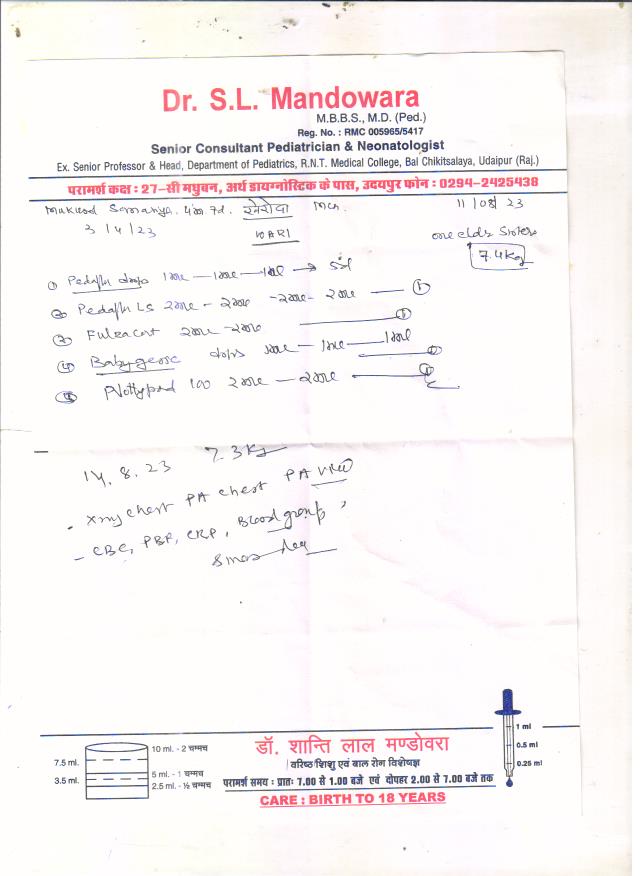 Dr. S.L. Mandowara
M.B.B.S., M.D. (Ped.)
Reg. No. : RMC 005965/5417
Senior Consultant Pediatrician & Neonatologist
Ex. Senior Professor & Head, Department of Pediatrics, R.N.T. Medical College, Bal Chikitsalaya, Udaipur (Raj.)
परामर्श कक्ष : 27-सी मधुबन, अर्थ डायग्नोस्टिक के पास, उदयपुर फोन : 0294-2425438
4m 7d. Mch 11/08/23
3/4/23 one elder sister
7.4Kg
① drops 1ml — 1ml — 1ml
② LS 2ml - 2ml - 2ml - 2ml
③ 2ml - 2ml
④ drops 1ml — 1ml — 1ml
⑤ 100 2ml — 2ml
14.8.23 7.3Kg
- Xray chest PA chest PA view
- CBC, PBF, CRP, Blood group,
10 ml. - 2 चम्मच
7.5 ml.
5 ml. - 1 चम्मच
3.5 ml.
2.5 ml. - ½ चम्मच
डॉ. शान्ति लाल मण्डोवरा
वरिष्ठ शिशु एवं बाल रोग विशेषज्ञ
परामर्श समय : प्रातः 7.00 से 1.00 बजे एवं दोपहर 2.00 से 7.00 बजे तक
CARE : BIRTH TO 18 YEARS
1 ml
0.5 ml
0.25 ml